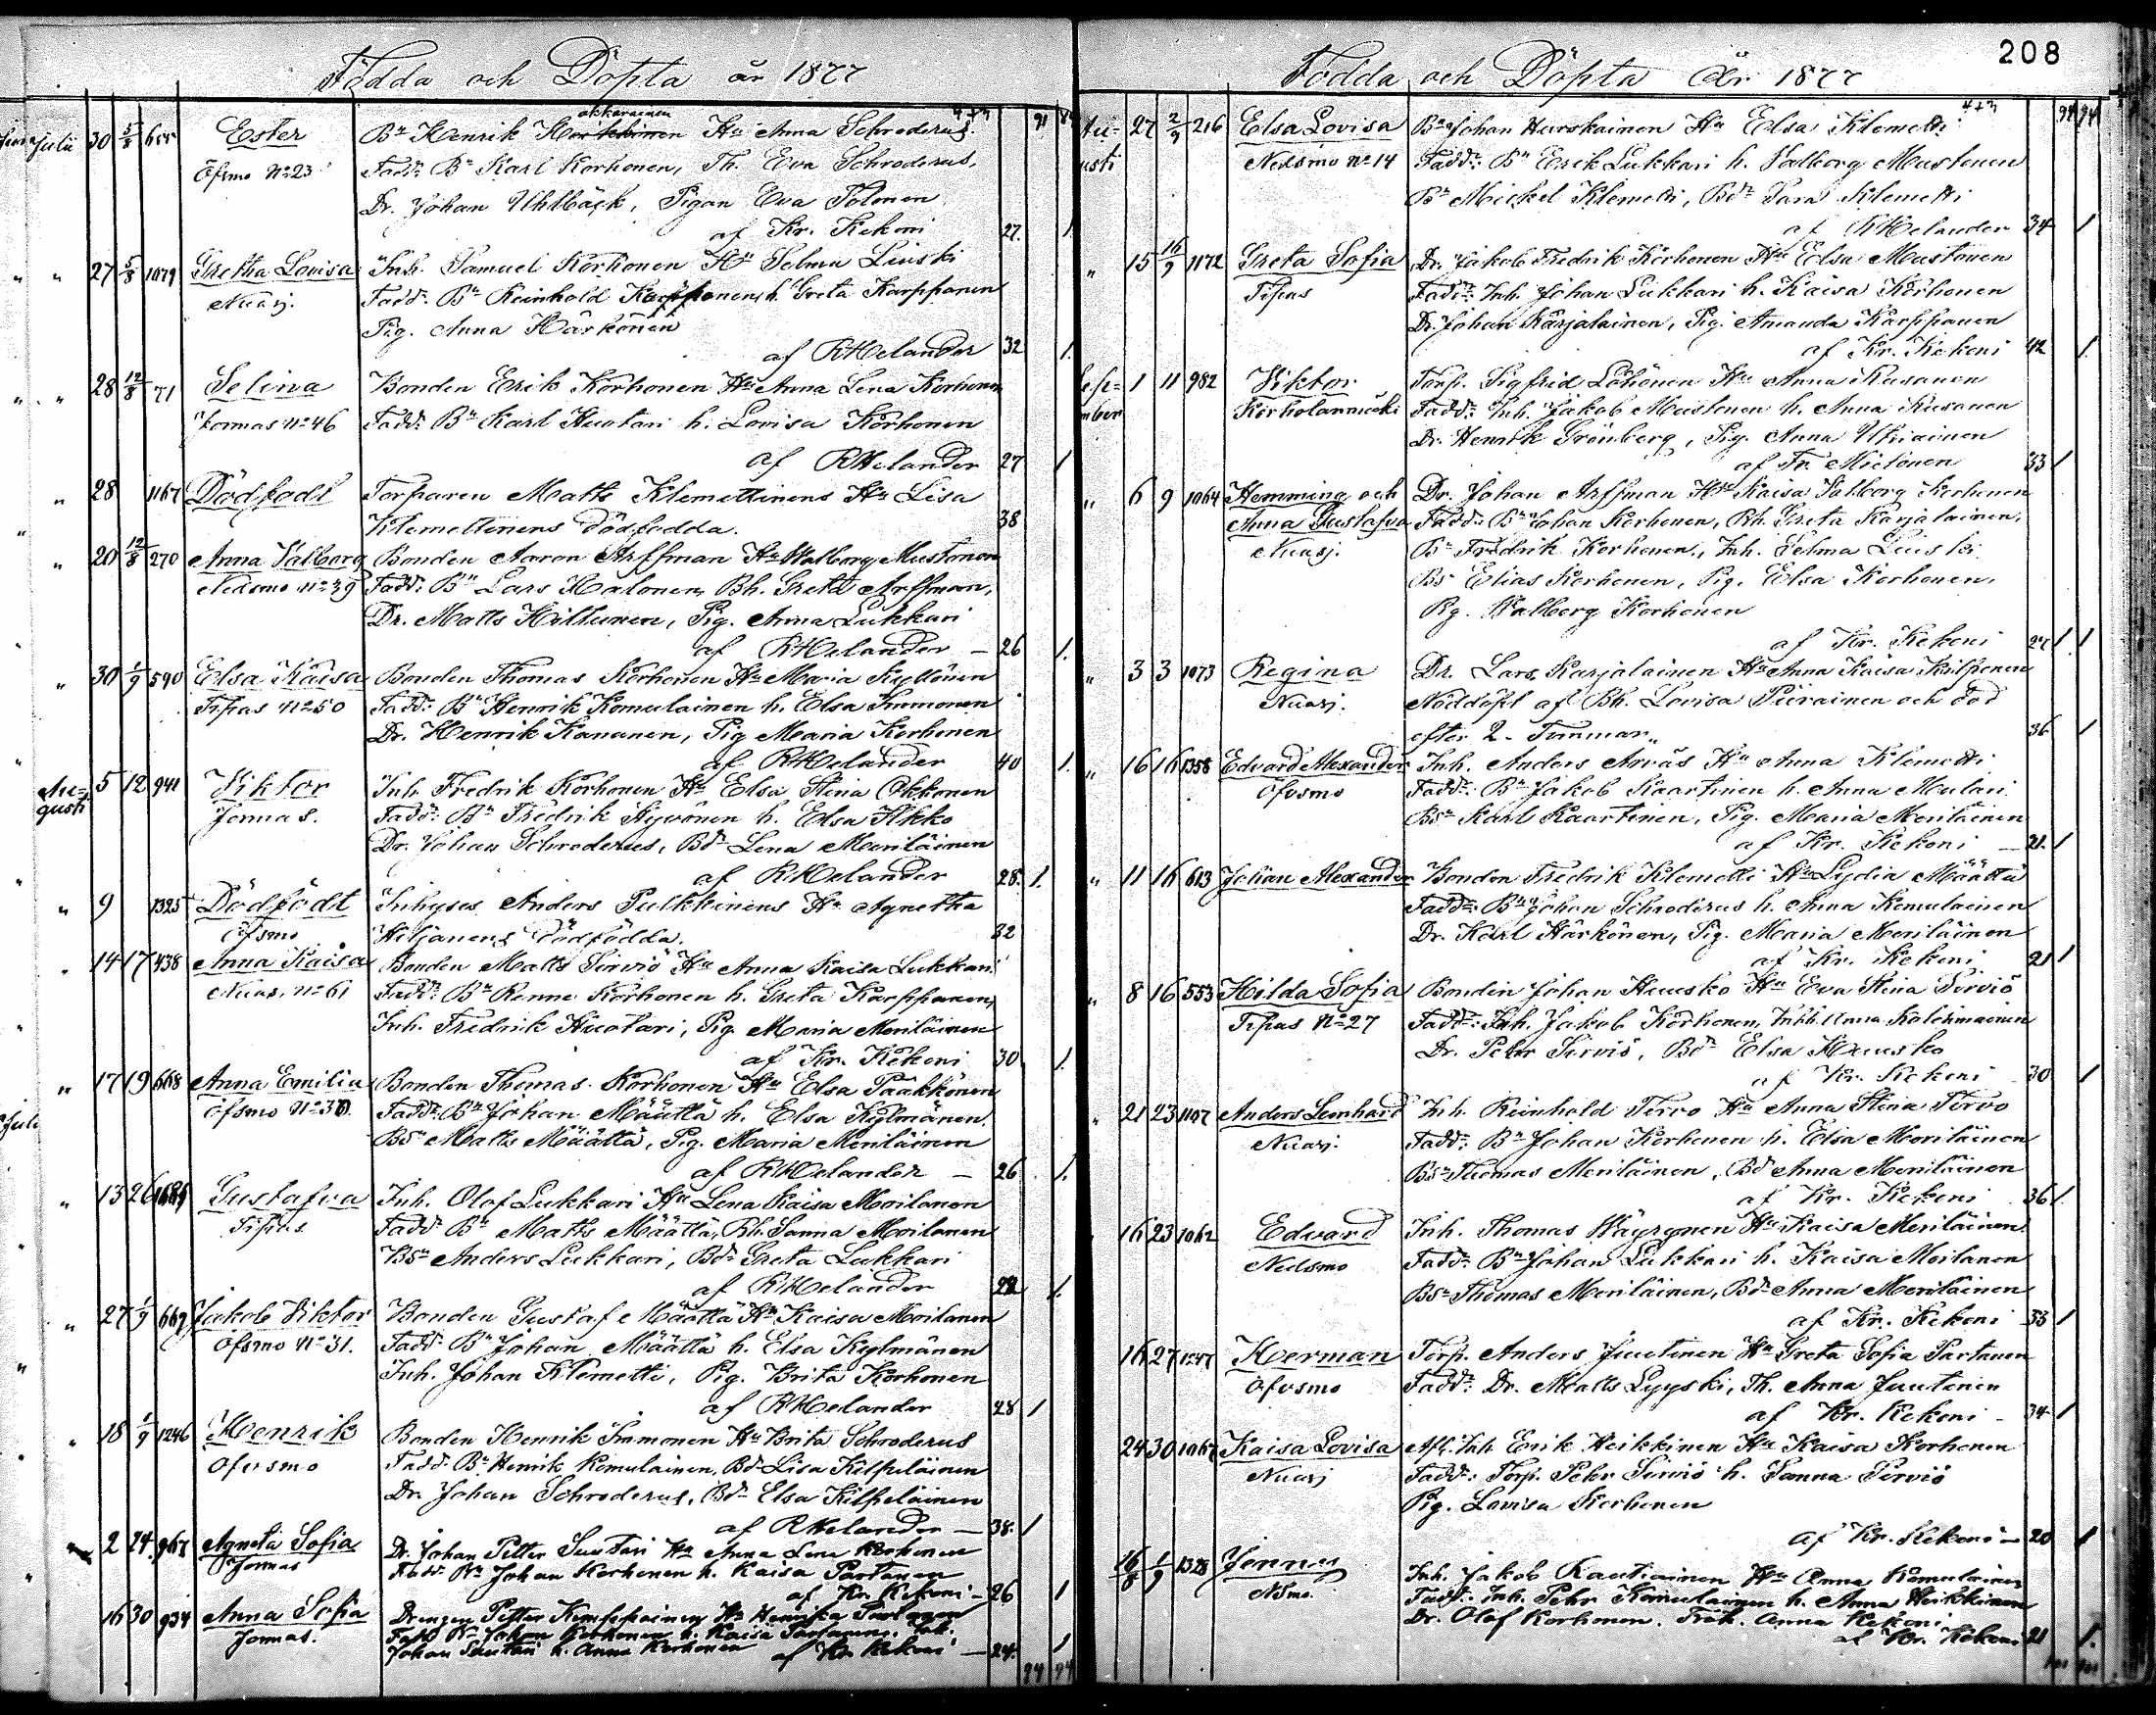 Födda och Döpta år 1877
Juli 30 5/8 Ester Bn Henrik Hokkarainen Hu Anna Schroderus.
Öfsmo No 23 Fadd: Bn Karl Korhonen, Th. Eva Schroderus,
Dr. Johan Uhlbäck, Pigan Eva Tolonen
af Kr. Kekoni 27. 1.
" " 27 5/8 1079 Gretha Lovisa Inh. Samuel Korhonen Hu Selma Liuski
Nuasj. Fadd: Bn Reinhold Karppanen, h. Greta Karppanen
Pig. Anna Härkönen
af RHelander 32 1.
" " 28 12/8 71 Selina Bonden Erik Korhonen Hu Anna Lena Korhonen
Jormas No 46 Fadd: Bn Karl Huotari h. Lovisa Korhonen
af RHelander 27 1
" 28 1167 Dödfödt Torparen Matts Klemettinens Hu Lisa
Klemettinens dödfödda. 38
" 20 12/8 270 Anna Valborg Bonden Aaron Arffman Hu Walborg Mustonen
Nedsmo No 39 Fadd: Bn Lars Halonen, Bh. Greta Arffman,
Dr. Matts Hiltunen, Pig. Anna Lukkari
af RHelander - 26 1.
" 30 1/9 590 Elsa Kaisa Bonden Thomas Korhonen Hu Maria Kyllönen
Tipas No 50 Fadd: Bn Henrik Komulainen h. Elsa Immonen
Dr. Henrik Kananen, Pig Maria Korhonen
af RHelander 40 1.
Augusti 5 12 941 Viktor Inh Fredrik Korhonen Hu Elsa Stina Okkonen
Jormas. Fadd: Bn Fredrik Hyvönen h. Elsa Hikko
Dr. Johan Schroderus, Bd Lena Meriläinen
af RHelander 28. 1.
" 9 1325 Dödfödt Inhyses Anders Pulkkinens Hu Agnetha
Öfsmo Hiljanens Dödfödda. 32
" 14 17 438 Anna Kaisa Bonden Matts Sirviö Hu Anna Kaisa Lukkari
Nuas. No 61 Fadd: Bn Renne Korhonen h. Greta Karppanen,
Inh. Fredrik Huotari, Pig Maria Meriläinen
af Kr. Kekoni 30 1.
" 17 19 668 Anna Emilia Bonden Thomas Korhonen Hu Elsa Pääkkönen
Öfsmo No 30. Fadd: Bn Johan Määttä h. Elsa Kylmänen.
Bsn Matts Määttä, Pig. Maria Meriläinen
af RHelander - 26 1.
" 13 26 Gustafva Inh. Olof Lukkari Hu Lena Kaisa Moilanen
Tipas. Fadd Bn Matts Määttä, Bh. Sanna Moilanen
Bsn Anders Lukkari, Bd Greta Lukkari
af RHelander 22 1.
" 27 1/9 669 Jakob Viktor Bonden Gustaf Määttä Hu Kaisa Moilanen
Öfsmo No 31. Fadd: Bn Johan Määttä h. Elsa Kylmänen
Inh. Johan Klemetti, Pig. Brita Korhonen
af RHelander 28 1
" 18 1/9 1246 Henrik Bonden Henrik Immonen Hu Brita Schroderus
Öfvsmo Fadd: Bn Henrik Komulainen, Bd Lisa Kilpeläinen
Dr Johan Schroderus, Bd Elsa Kilpeläinen
af RHelander - 38. 1
2 24 967 Agneta Sofia Dr. Johan Petter Sustari Hu Anna Lena Korhonen
Jormas Fadd: Bn Johan Korhonen h. Kaisa Partanen
af Kr. Kekoni - 26 1
16 30 934 Anna Sofia Drengen Petter Kemppainen Hu Henrika Partanen
Jormas. Fadd Bn Johan Korhonen h. Kaisa Partanen, Inh.
Johan Sustari h. Anna Korhonen af Kr Kekoni - 24. 1
94 94
208
Födda och Döpta År 1877
Augusti 27 2/9 216 Elsa Lovisa Bn Johan Hurskainen Hu Elsa Klemetti
Nedsmo No 14 Fadd: Bn Erik Lukkari h. Valborg Mustonen
Bn Mickel Klemetti, Bd Sara Klemetti
af RHelander 34 1
" 15 16/9 1172 Greta Sofia Dr. Jakob Fredrik Korhonen Hu Elsa Mustonen
Tipas Fadd: Inh. Johan Lukkari h. Kaisa Korhonen
Dr. Johan Karjalainen, Pig. Amanda Karppanen
af Kr. Kekoni 42 1.
September 1 11 982 Viktor Torp. Sigfrid Löhönen Hu Anna Kusonen
Korholanmäki Fadd: Inh. Jakob Mustonen h. Anna Kusonen
Dr. Henrik Grönberg, Pig. Anna Uhiainen
af Fr. Mietonen 33 1
" 6 9 1064 Hemming och Dr. Johan Arffman Hu Kaisa Valborg Korhonen
Anna Gustafva Fadd: Bn Johan Korhonen, Bh. Greta Karjalainen,
Nuasj. Bn Fredrik Korhonen, Inh. Selma Liuski
Bs Elias Korhonen, Pig. Elsa Korhonen,
Pig. Walborg Korhonen
af Kr. Kekoni 27 1. 1
" 3 3 1073 Regina Dr. Lars Karjalainen Hu Anna Kaisa Karppanen
Nuasj. Nöddöpt af Bh. Lovisa Piirainen och död
efter 2 Timmar " 36 1
" 16 16 1358 Edvard Alexander Inh. Anders Anväs Hu Anna Klemetti
Öfvsmo Fadd: Bn Jakob Kaartinen h. Anna Mulari
Bsn Karl Kaartinen, Pig. Maria Meriläinen
af Kr. Kekoni - 21. 1
" 11 16 613 Johan Alexander Bonden Fredrik Klemetti Hu Lydia Määttä
Fadd: Bn Johan Schroderus h. Anna Komulainen
Dr. Karl Härkönen, Pig. Maria Meriläinen
af Kr. Kekoni 21 1
" 8 16 553 Hilda Sofia Bonden Johan Huusko Hu Eva Stina Sirviö
Tipas No 27 Fadd: Inh. Jakob Korhonen, Inhh. Anna Kolehmainen
Dr. Pehr Sirviö, Bd Elsa Huusko
af Kr. Kekoni 30 1
" 21 23 1107 Anders Leonhard Inh. Reinhold Tervo Hu Anna Stina Tervo
Nuasj. Fadd: Bn Johan Korhonen h. Elsa Meriläinen
Bsn Thomas Meriläinen, Bd Anna Meriläinen
af Kr. Kekoni 36 1.
16 23 1062 Edvard Inh. Thomas Wäyrynen Hu Kaisa Meriläinen.
Nedsmo Fadd: Bn Johan Lukkari h. Kaisa Moilanen
Bsn Thomas Meriläinen, Bd Anna Meriläinen
af Kr. Kekoni 33 1
16 27 1247 Herman Torp. Anders Juutinen Hu Greta Sofia Partanen
Öfvsmo Fadd: Dr. Matts Lyyski, Th. Anna Juutinen
af Kr. Kekoni - 34 1
24 30 1067 Kaisa Lovisa Afl. Inh. Erik Heikkinen Hu Kaisa Korhonen
Nuasj Fadd: Torp. Pehr Sirviö h. Sanna Sirviö
Pig. Lovisa Korhonen
af Kr. Kekoni - 20 1
16/8 1/9 1328 Jenny Inh. Jakob Rautiainen Hu Anna Komulainen
NSmo. Fadd: Inh. Pehr Komulainen h. Anna Heikkinen
Dr. Olof Korhonen. Frök. Anna Kekoni
af Kr. Kekoni 21 1.